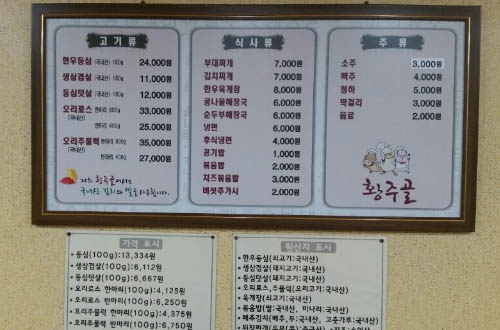 고기류
한우등심 (국내산) 180g 24,000원
생삼겹살 (국내산) 180g 11,000원
등심덧살 (국내산) 180g 12,000원
오리로스 한마리 800g 33,000원
(국내산)
반마리 400g 25,000원
오리주물럭 한마리 800g 35,000원
(국내산)
반마리 400g 27,000원
저희 황주골에서는
국내산 김치와 쌀을 사용합니다.
식사류
부대찌개 7,000원
김치찌개 7,000원
한우육개장 8,000원
콩나물해장국 6,000원
순두부해장국 6,000원
냉면 6,000원
후식냉면 4,000원
공기밥 1,000원
볶음밥 2,000원
치즈볶음밥 3,000원
버섯추가시 2,000원
주류
소주 3,000원
맥주 4,000원
청하 5,000원
막걸리 3,000원
음료 2,000원
황주골
가격 표시
• 등심(100g):13,334원
• 생삼겹살(100g):6,112원
• 등심덧살(100g):6,667원
• 오리로스 한마리(100g):4,125원
• 오리로스 반마리(100g):6,250원
• 오리주물럭 한마리(100g):4,375원
• 오리주물럭 반마리(100g):6,750원
원산지 표시
• 한우등심(쇠고기:국내산)
• 생삼겹살(돼지고기:국내산)
• 등심덧살(돼지고기:국내산)
• 오리로스,주물럭(오리고기:국내산)
• 육개장(쇠고기:국내산)
• 볶음밥(쌀:국내산, 미나리:국내산)
• 배추김치(배추,무:국내산, 고춧가루:국내산)